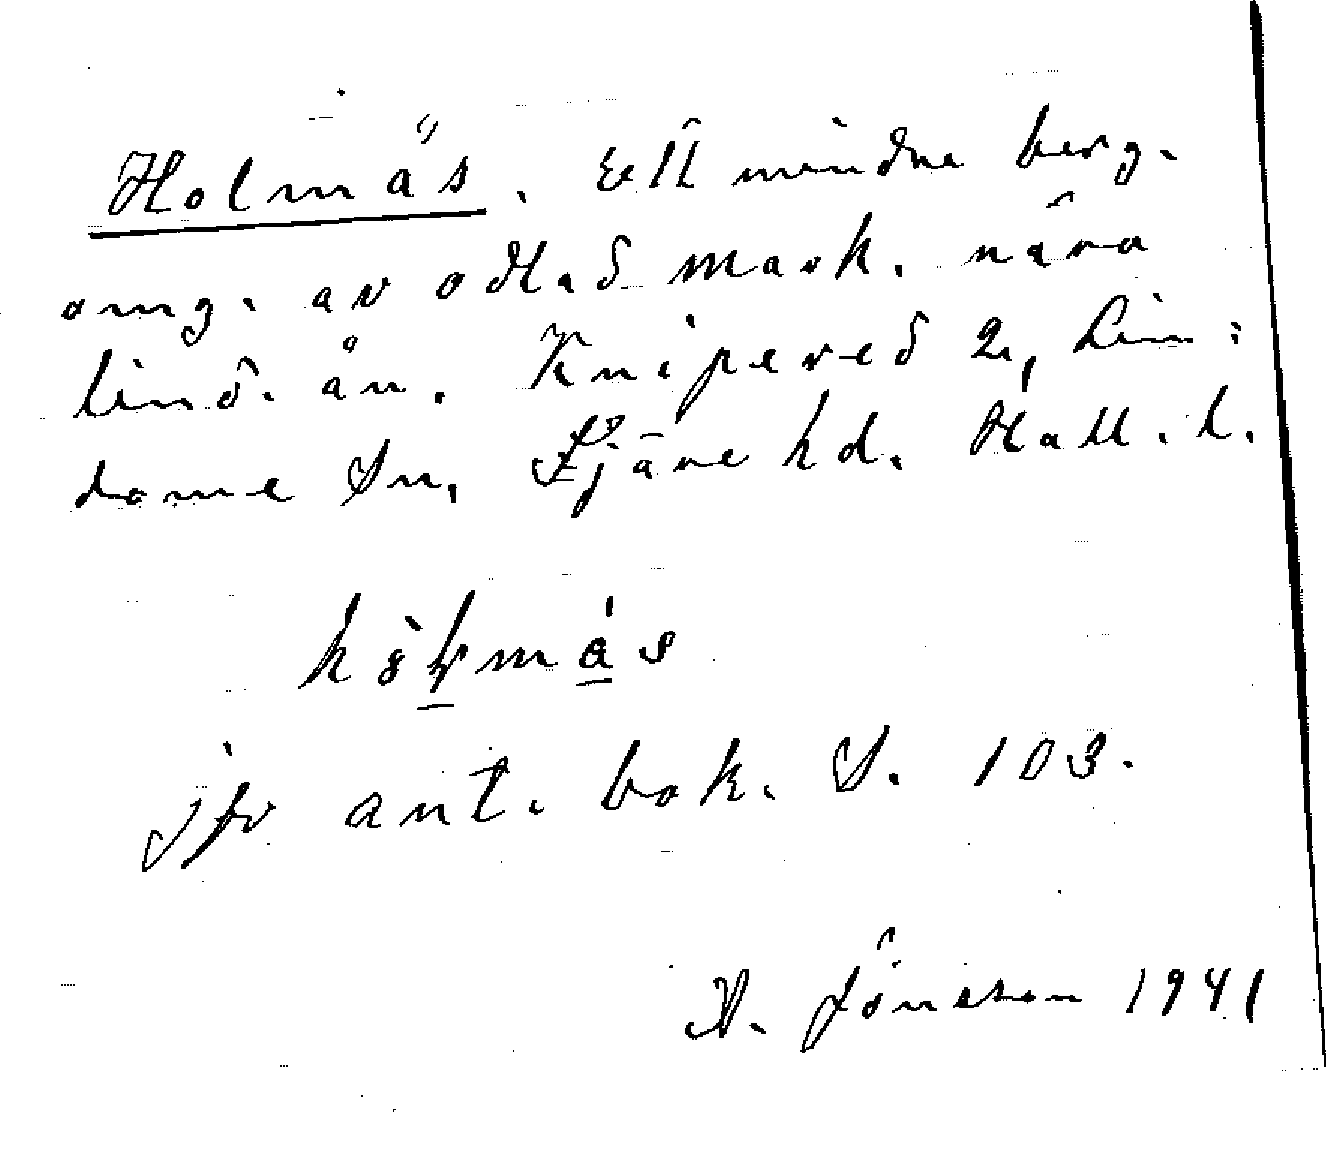 Holmås. Ett mindre berg.
omg. av odlad mark. nära
lind. ån. Knipered 2, Lin:
dome Sn. Fjäre hd. Hall. l.
jfr ant. bok. S. 103.
A. Jönsson 1941